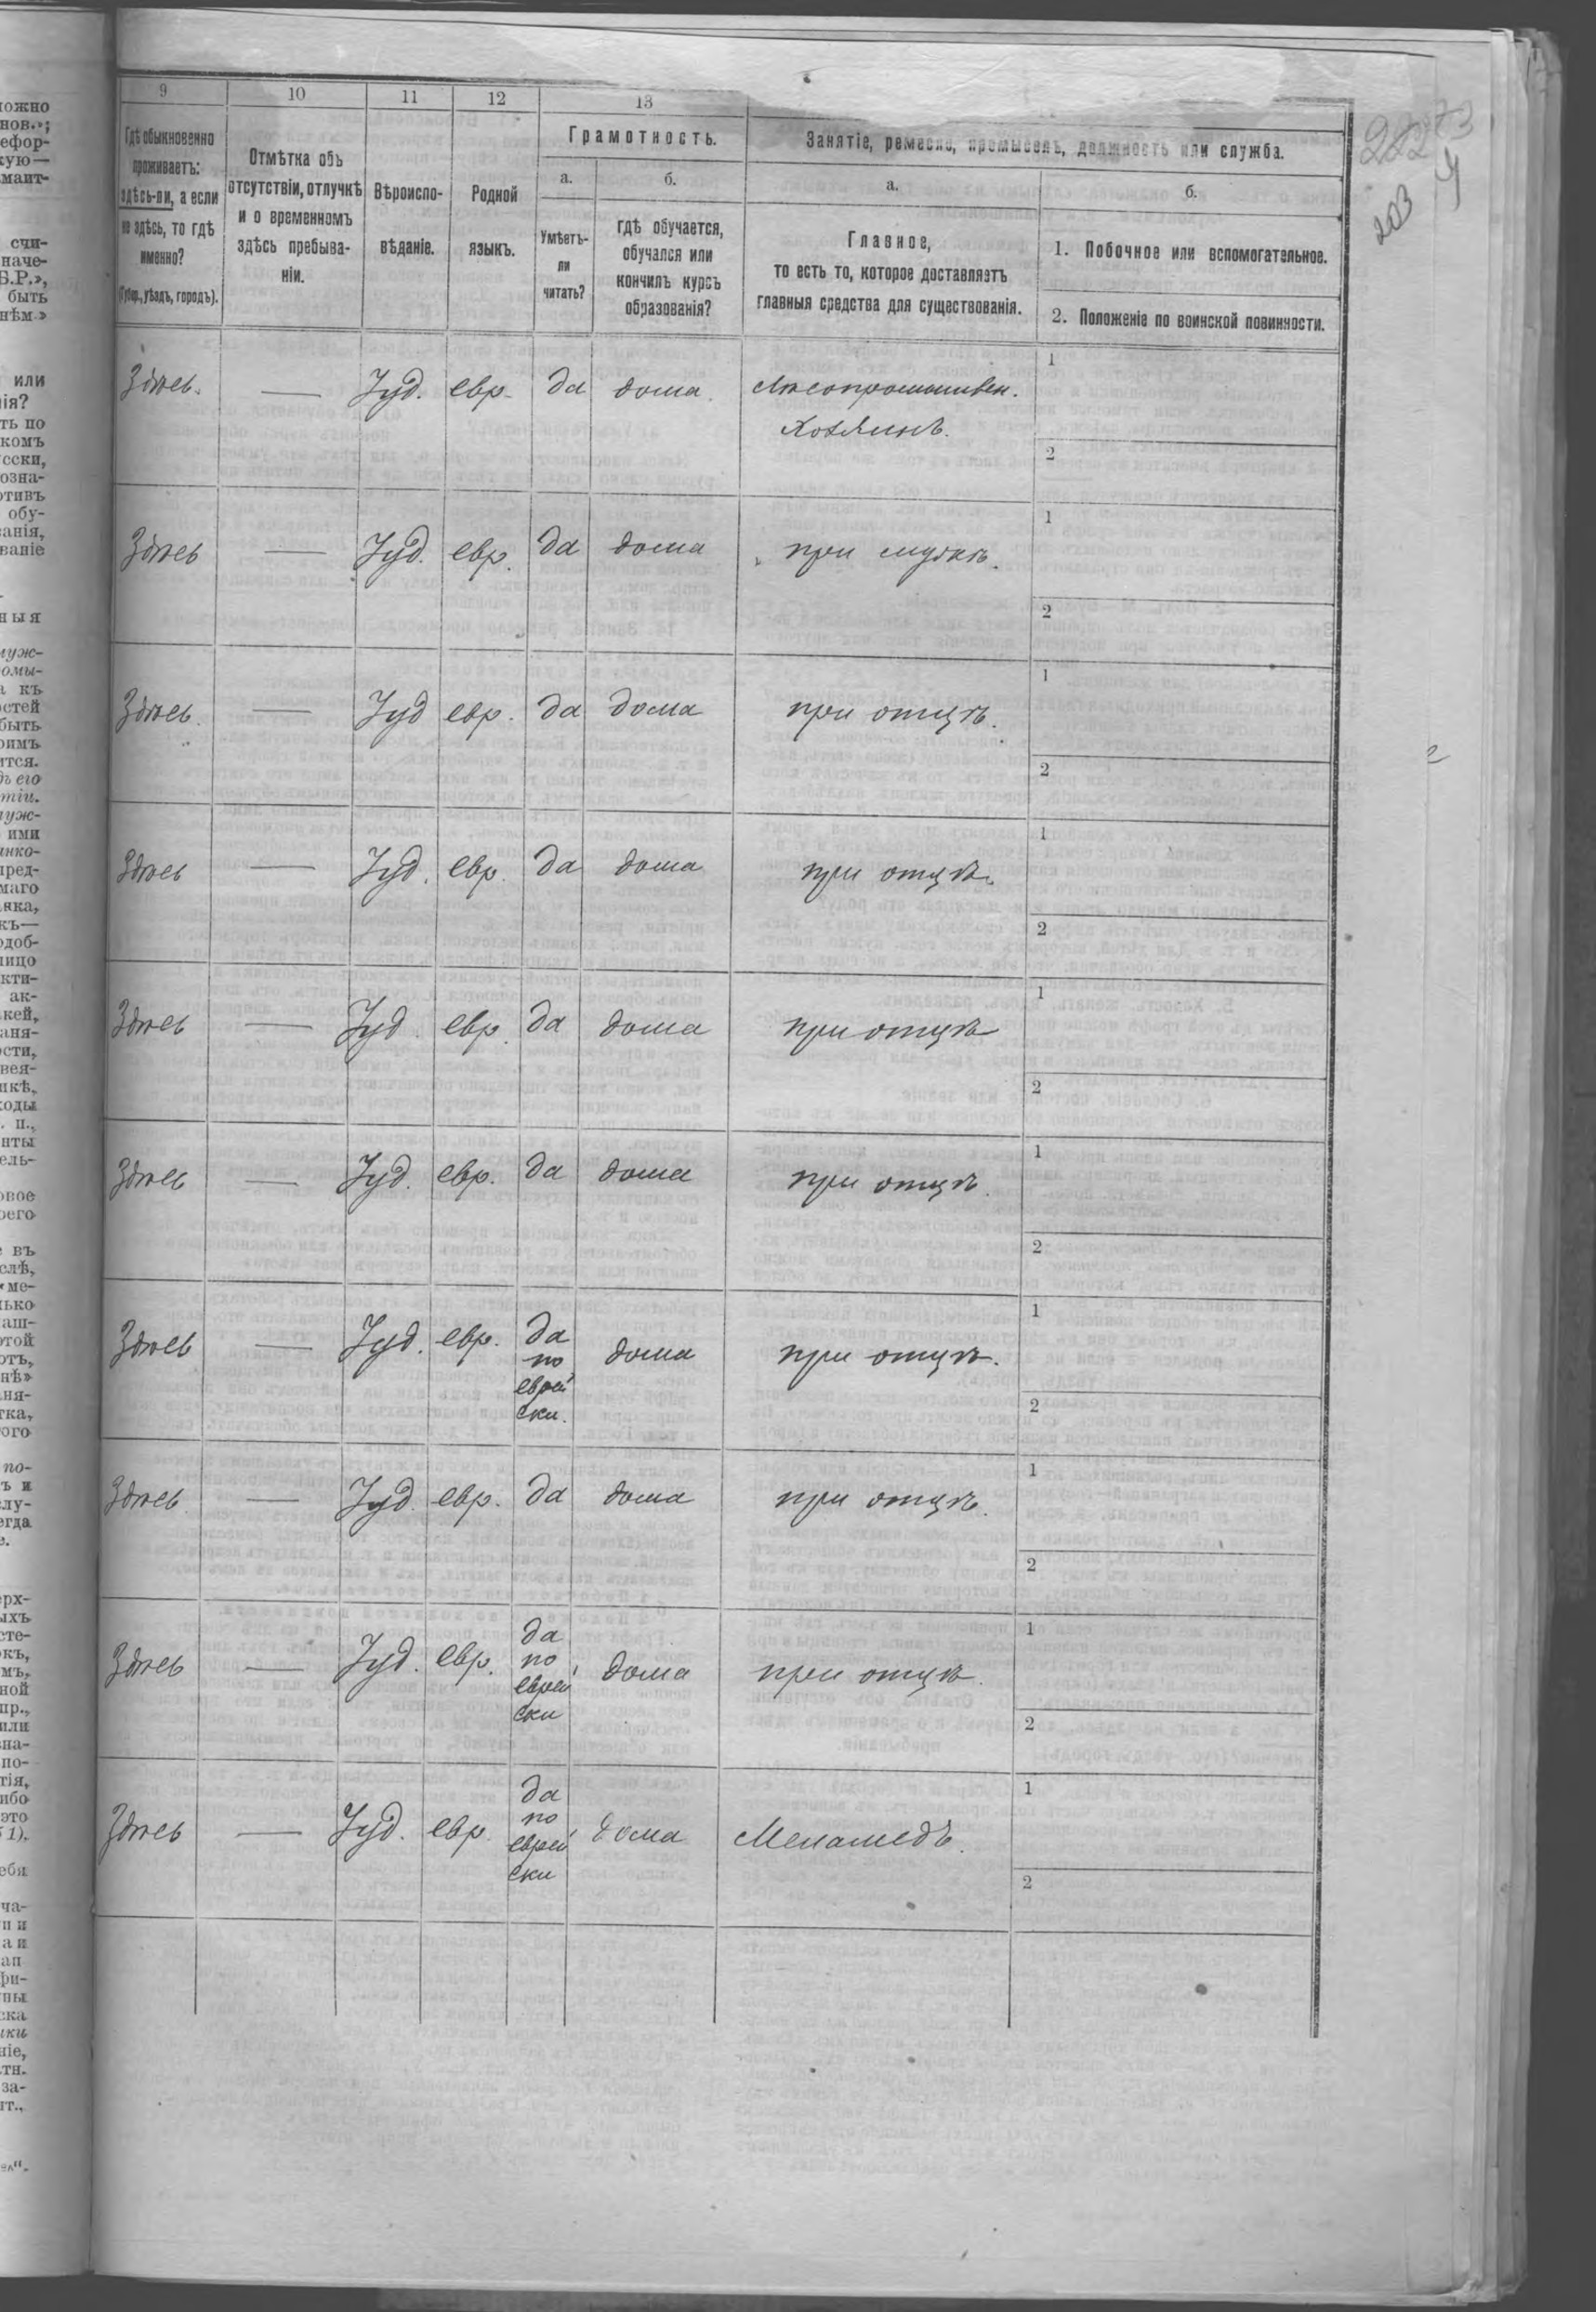 9 10 11 12 13
Гдѣ обыкновенно
проживаетъ:
здѣсь-ли, а если
не здѣсь, то гдѣ
именно?
(Губер., уѣздъ, городъ).
Отмѣтка объ
отсутствіи, отлучкѣ
и о временномъ
здѣсь пребыва-
ніи.
Вѣроиспо-
вѣданіе.
Родной
языкъ.
Грамотность.
а.
Умѣетъ-
ли
читать?
б.
гдѣ обучается,
обучался или
кончилъ курсъ
образованія?
Занятіе, ремесло, промыселъ, должность или служба.
а.
Главное,
то есть то, которое доставляетъ
главныя средства для существованія.
б.
1. Побочное или вспомогательное.
2. Положеніе по воинской повинности.
203
Здѣсь. — Іуд. евр. да дома. Лѣсопромышлен.
Хозяинъ.
1
2
Здѣсь — Іуд. евр. да дома при мужѣ.
1
2
Здѣсь. — Іуд евр. да дома при отцѣ.
1
2
Здѣсь — Іуд. евр. да дома при отцѣ.
1
2
Здѣсь — Іуд. евр. да дома при отцѣ
1
2
Здѣсь — Іуд. евр. да дома при отцѣ.
1
2
Здѣсь — Іуд. евр. да
по
еврей
ски.
дома при отцѣ.
1
2
Здѣсь — Іуд. евр. да дома при отцѣ.
1
2
Здѣсь — Іуд. евр. да
по
еврей
ски
дома при отцѣ.
1
2
Здѣсь — Іуд. евр. да
по
еврей
ски
дома Меламедъ.
1
2